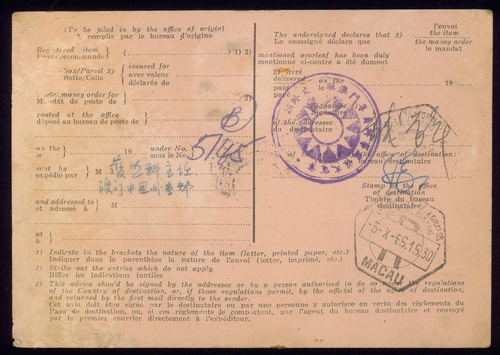 (To be filled in by the office of origin)
A remplir par le bureau d'origine
Registered item
Envoi recommandé
1) 2)
Box/Parcel 2)
Boîte/Colis
insured for
avec valeur
déclarée de
Postal money order for
Mandat de poste de
2)
posted at the office
déposé au bureau de poste
on the
le
19
under No.
sous le No.
5145
sent by
expédié par
M
and addressed to
et adressé à
M
at
à
The undersigned declares that 2)
Le soussigné déclare que
l'envoi
the item
the money order
le mandat
mentioned overleaf has been duly
mentionné ci-contre a été dument
2) livré
delivered
paid
payé
on the
le
19
Signature
Signature
of the addressee
du destinataire
of the office of destination:
du bureau destinataire
Stamp of the office
of destination
Timbre du bureau
destinataire
MACAU
1) Indicate in the brackets the nature of the item (letter, printed paper, etc.)
Indiquer dans la parenthèse la nature de l'envoi (lettre, imprimé, etc.)
2) Strike out the entries which do not apply
Biffer les indications inutiles
3) This advice should be signed by the addressee or by a person authorised to do so under the regulations
of the Country of destination, or, if those regulations permit, by the official of the office of destination,
and returned by the first mail directly to the sender.
Cet avis doit être signé par le destinataire ou par une personne y autorisée en vertu des règlements du
Pays de destination, ou, si ces règlements le comportent, par l'agent du bureau destinataire et renvoyé
par le premier courrier directement à l'expéditeur.